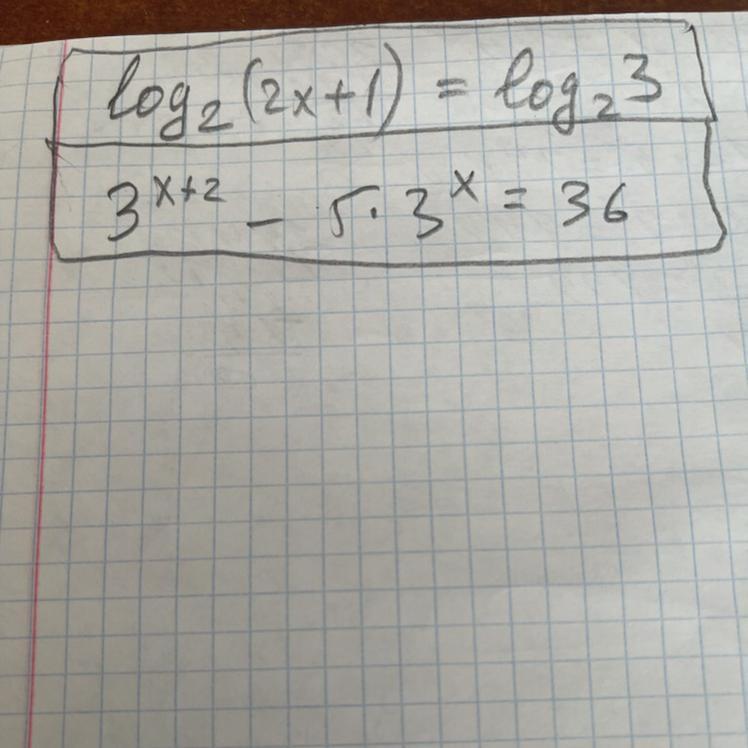 log₂(2x+1) = log₂3
3^(x+2) - 5·3^x = 36